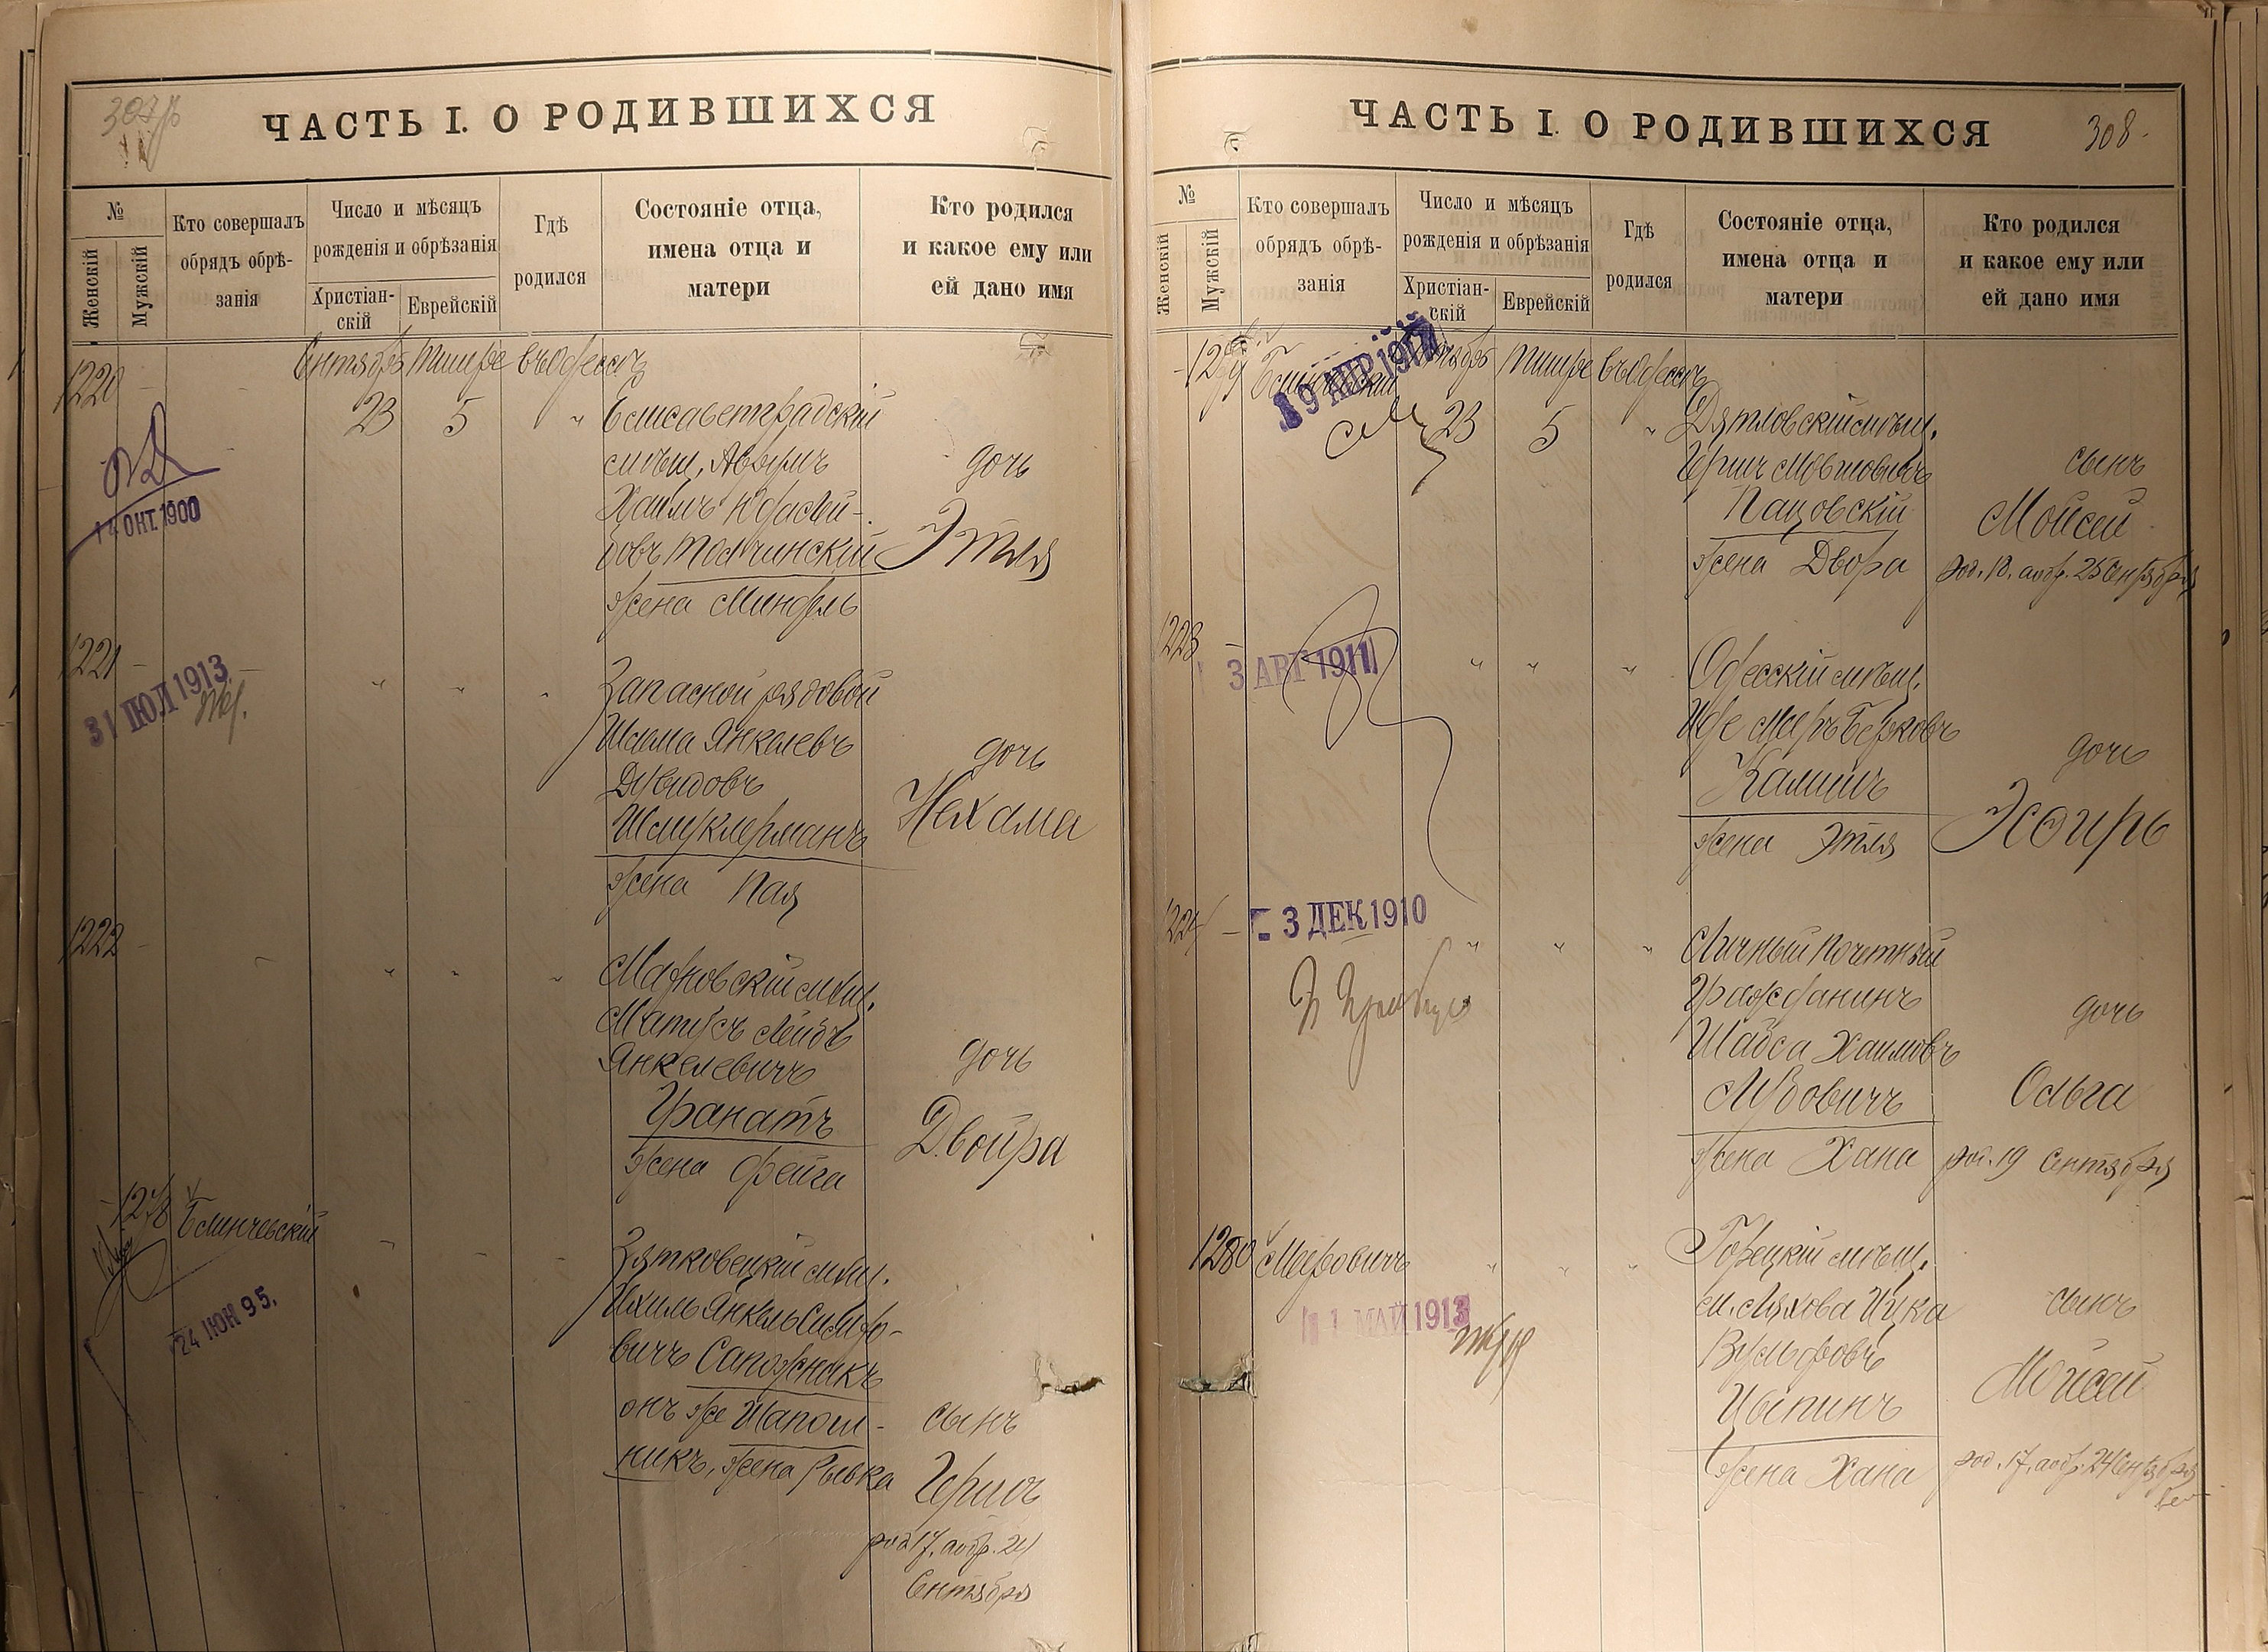 ЧАСТЬ I. О РОДИВШИХСЯ
№
Женскій
Мужскій
Кто совершалъ
обрядъ обрѣ-
занія
Число и мѣсяцъ
рожденія и обрѣзанія
Христіан-
скій
Еврейскій
Гдѣ
родился
Состояніе отца,
имена отца и
матери
Кто родился
и какое ему или
ей дано имя
1220
Сентябрь Тишре въ Одессѣ
23 5 " Елисаветградскій
мѣщ. Аврумъ
Хаимъ
Толчинскій
жена Миндль
дочь
Этля
14 ОКТ. 1900
1221
31 ЮЛ 1913
" " " Запасной рядовой
Шлема Янкелевъ
Давидовъ
Шмуклерманъ
жена Пая
дочь
Нехама
1222
" " " мѣщ.
Матусъ Лейбъ
Янкелевичъ
Гранатъ
жена Фейга
дочь
Двойра
1278 Блинчевскій
24 ЮН 95.
Зятковецкій мѣщ.
Ихиль Янкель
вичъ Сапожникъ
онъ же Шапош-
никъ, жена Рывка
сынъ
Герш
род 17, а обр. 24
Сентября
ЧАСТЬ I. О РОДИВШИХСЯ
308
№
Женскій
Мужскій
Кто совершалъ
обрядъ обрѣ-
занія
Число и мѣсяцъ
рожденія и обрѣзанія
Христіан-
скій
Еврейскій
Гдѣ
родился
Состояніе отца,
имена отца и
матери
Кто родился
и какое ему или
ей дано имя
1279 Тишре въ Одессѣ
9 АПР 1917
23 5 " Дятловскій мѣщ.
Гершъ Мовшовичъ
Пацовскій
жена Двора
сынъ
Мойсей
род. 18, а обр. 25 Сентября
1223
3 АВГ 1911
" " " Одесскій мѣщ.
Меръ Берковъ
Калишъ
жена Этля
дочь
Эсѳирь
1224
3 ДЕК 1910
" " " Личный почетный
гражданинъ
Шабса Хаимовъ
жена Хана
дочь
Ольга
род. 19 Сентября
1280 Меровичъ
11 МАЙ 1913
" " " Горецкій мѣщ.
м. Ляхова Ицка
Вульфовъ
Цыпинъ
жена Хана
сынъ
Мойсей
род. 17, а обр. 24 Сентября